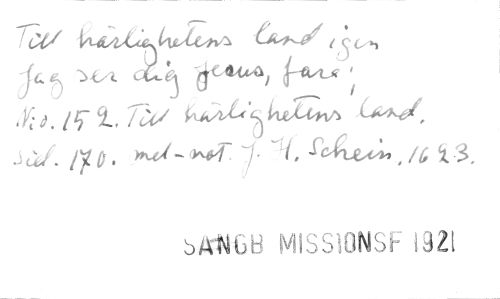 Till härlighetens land igen
Jag ser dig Jesus, fara;
N:o. 152. Till härlighetens land.
sid. 170. mel-not. J. H. Schein, 1623.
SANGB MISSIONSF 1921